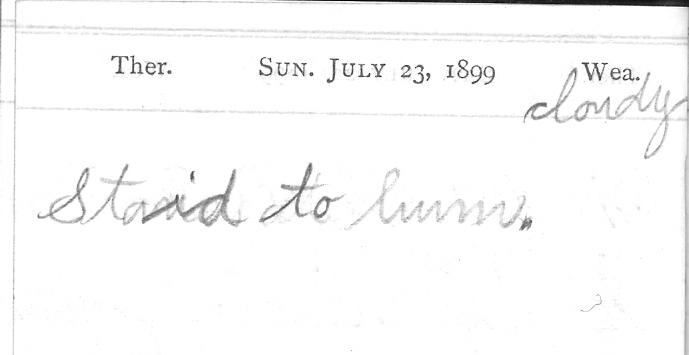 Ther. SUN. JULY 23, 1899 Wea.
cloudy
Staid to